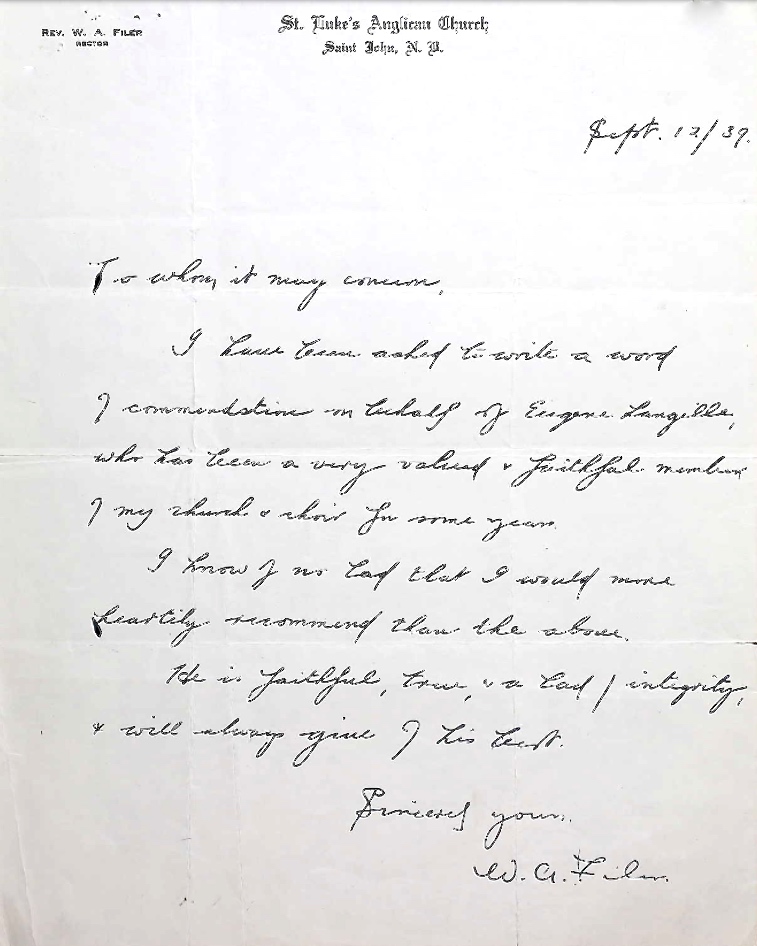 REV. W. A. FILER
RECTOR
St. Luke's Anglican Church
Saint John, N. B.
Sept. 12/39.
To whom it may concern,
I have been asked to write a word
of commendation on behalf of Eugene Langille,
who has been a very valued & faithful member
of my church & choir for some years.
I know of no lad that I would more
heartily recommend than the above.
He is faithful, true, & a lad of integrity,
& will always give of his best.
Sincerely yours,
W. A. Filer.